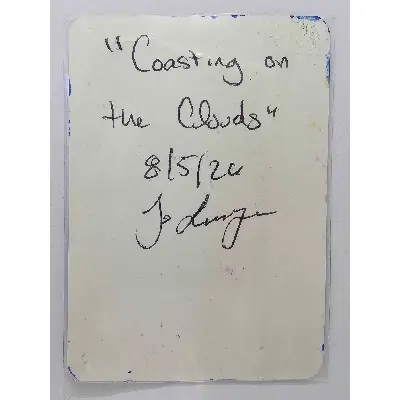 "Coasting on
the Clouds"
8/5/24
Jo